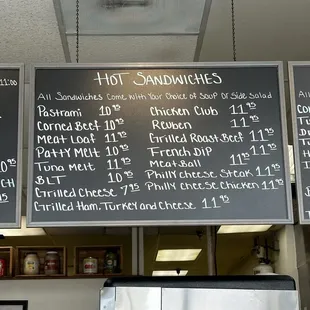 Hot Sandwiches
All Sandwiches Come with Your Choice of Soup or Side Salad
Pastrami 10.95
Corned Beef 10.95
Meat Loaf 11.95
Patty Melt 10.95
Tuna Melt 11.95
BLT 10.95
Grilled Cheese 7.95
Grilled Ham, Turkey and Cheese 11.95
Chicken Club 11.95
Reuben 11.95
Grilled Roast Beef 11.95
French Dip 11.95
Meat Ball 11.95
Philly Cheese Steak 11.95
Philly Cheese Chicken 11.95